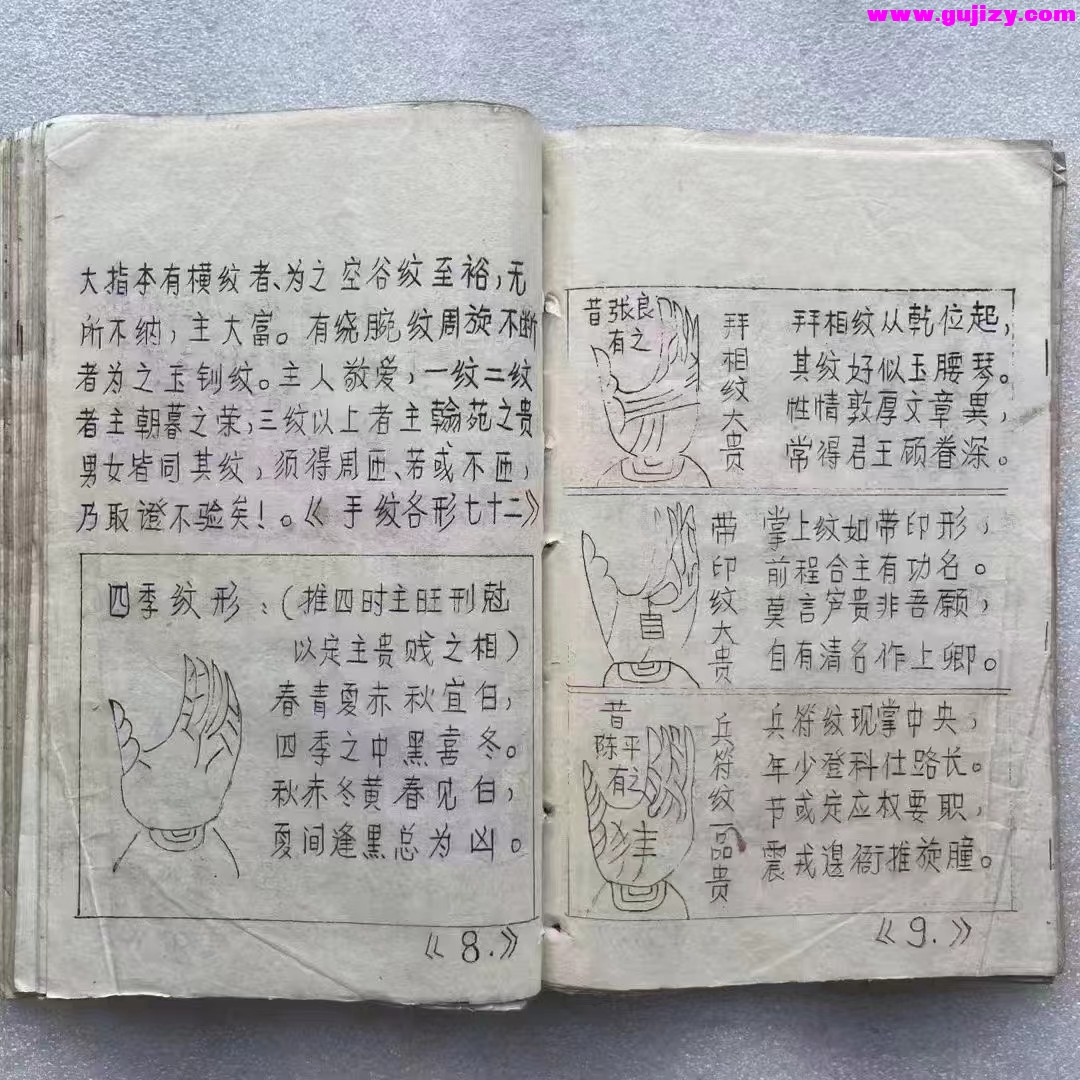 www.gujizy.com
大指本有横纹者、为之空谷纹至裕,无
所不纳,主大富。有绕腕纹周旋不断
者为之玉钏纹。主人敬爱,一纹二纹
者主朝暮之荣,三纹以上者主翰苑之贵
男女皆同其纹,须得周匝、若或不匝,
乃取證不验矣!。《手纹各形七十二》
四季纹形:(推四时主旺刑尅
以定主贵贱之相)
春青夏赤秋宜白,
四季之中黑喜冬。
秋赤冬黄春见白,
夏间逢黑总为凶。
《8.》
昔张良
有之
拜相纹大贵
拜相纹从乾位起,
其纹好似玉腰琴。
性情敦厚文章異,
常得君王顾眷深。
带印纹大贵
掌上纹如带印形,
前程合主有功名。
莫言贵非吾願,
自有清名作上卿。
昔
陈平
有之
兵符纹一品贵
兵符纹现掌中央,
年少登科仕路长。
节或定应权要职,
震戎邊衙推旋膧。
《9.》